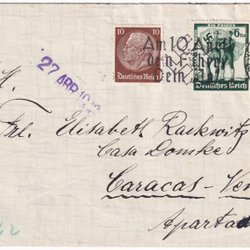 10 10
Deutsches Reich
6+
Deutsches Reich
Am 10. April
dem Führer
Dein
27 ABR 19
Frl. Elisabeth Rackwitz
Casa Domke
Caracas - Ve
Aparta